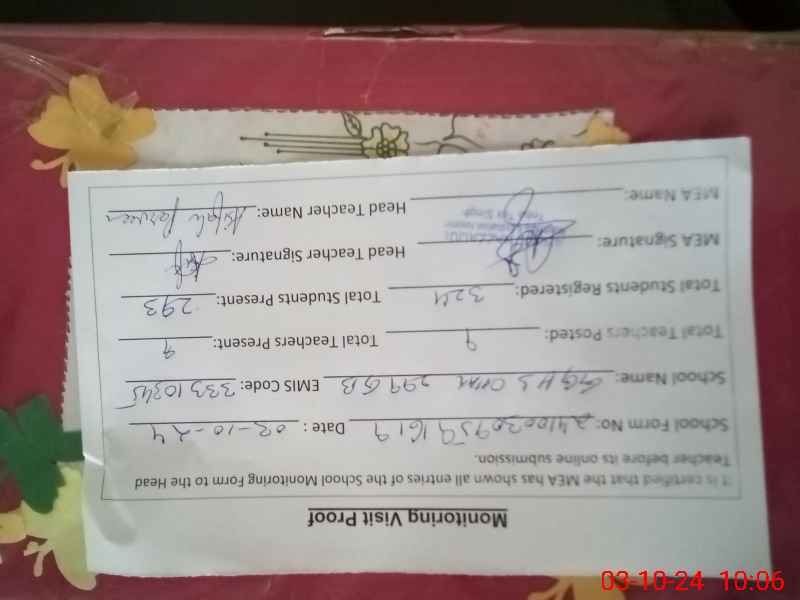 Monitoring Visit Proof
It is certified that the MEA has shown all of the entries of the School Monitoring Form to the Head
Teacher before its online submission.
School Form No: 24100309591619 Date : 03-10-24
School Name: GGHS 299 GB EMIS Code: 33310345
Total Teachers Posted: 9 Total Teachers Present: 9
Total Students Registered: 324 Total Students Present: 293
MEA Signature: Head Teacher Signature:
MEA Name: Head Teacher Name: Parveen
Toba Tek Singh
03-10-24 10:06